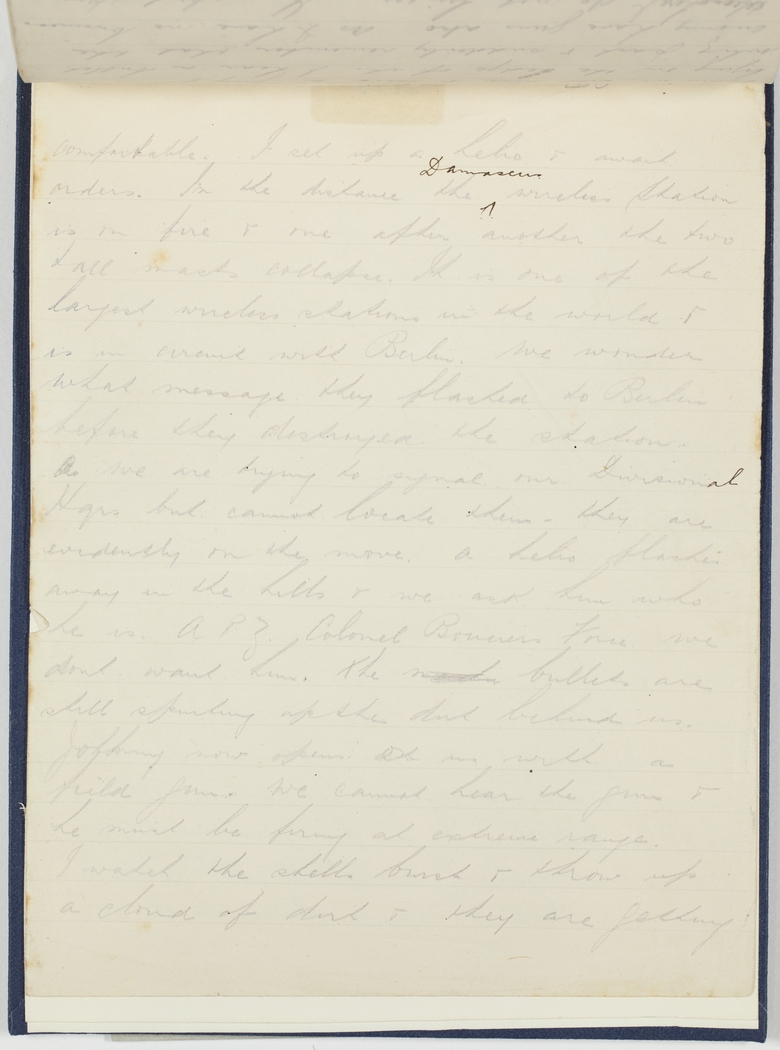 comfortable. I set up a helio & await
orders. In the distance the Damascus wireless Station
is on fire & one after another the two
tall masts collapse. It is one of the
largest wireless stations in the world &
is in circuit with Berlin. We wonder
what message they flashed to Berlin
before they destroyed the station.
We are trying to signal our Divisional
Hqrs but cannot locate them - they are
evidently on the move. A helio flashes
away in the hills & we ask him who
he is. A P Z. Colonel Force we
dont want him. The bullets are
still spurting up the dirt behind us.
now opens at us with a
field gun. We cannot hear the gun &
he must be firing at extreme range.
I watch the shells burst & throw up
a cloud of dirt & they are getting